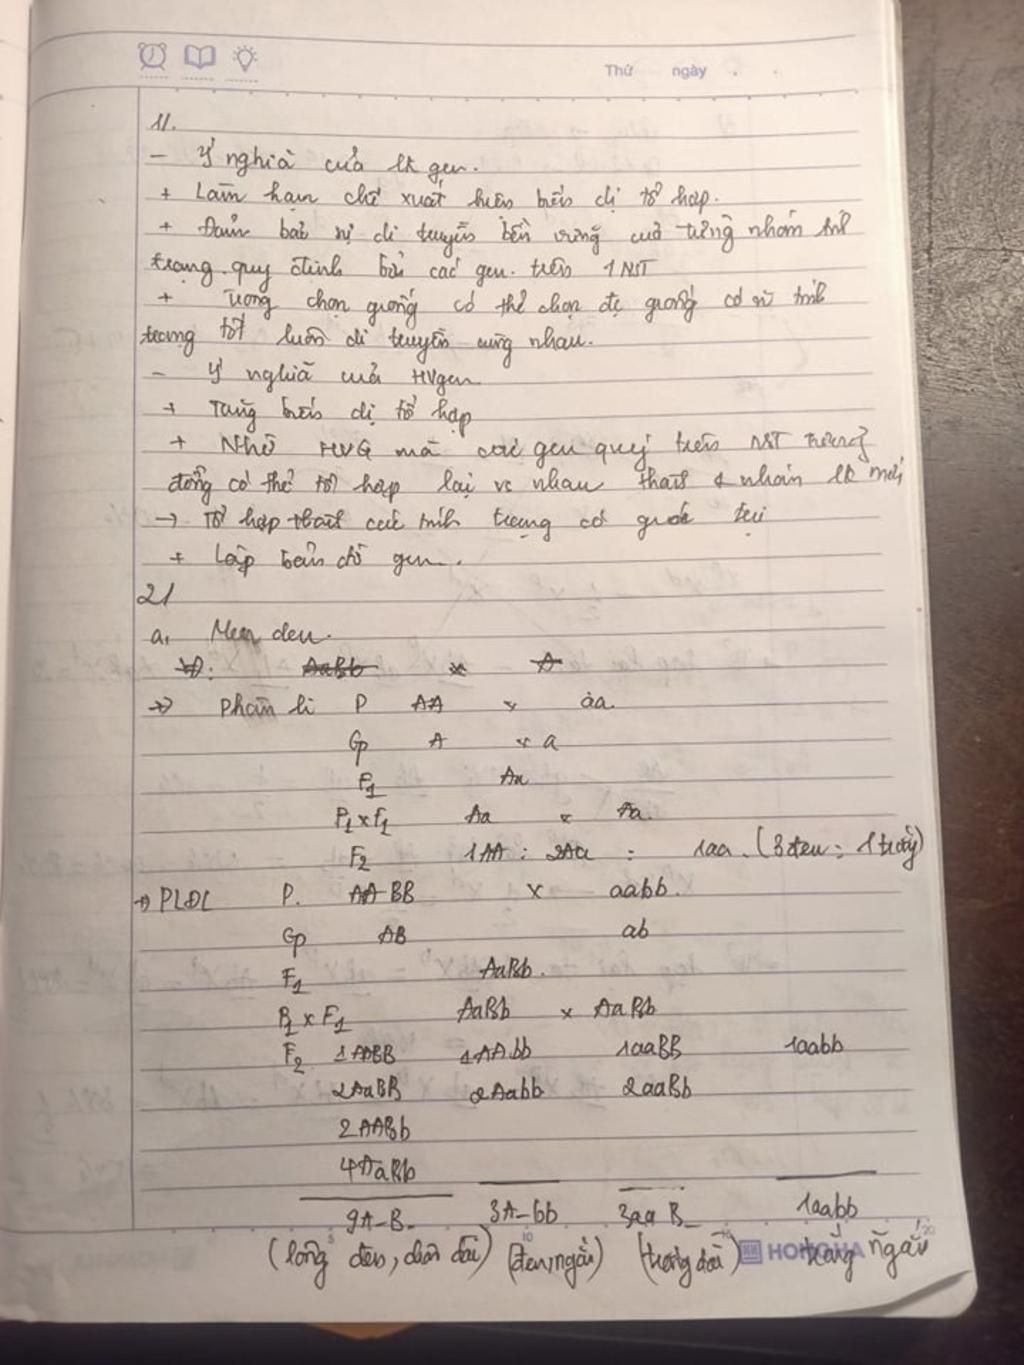 Thứ ngày
11.
- Ý nghĩa của lk gen.
+ Làm hạn chế xuất hiện biến dị tổ hợp.
+ Đảm bảo sự di truyền bền vững của từng nhóm tính
trạng quy định bởi các gen trên 1 NST
+ Trong chọn giống có thể chọn đc giống có tính
trạng tốt luôn di truyền cùng nhau.
- Ý nghĩa của HVgen
+ Tăng biến dị tổ hợp
+ Nhờ HVG mà các gen quý trên NST tương
đồng có thể tổ hợp lại vs nhau nhóm lk mới
→ Tổ hợp tính trạng có
+ Lập bản đồ gen.
21
a, Men đen.
Phân li P AA × aa
Gp A × a
F1 Aa
F1 x F1 Aa × Aa
F2 1AA : 2Aa : 1aa. (3 đen : 1 trắng)
PLĐL P. AABB × aabb.
Gp AB ab
F1 AaBb.
F1 x F1 AaBb × AaBb
F2 1AABB 1AAbb 1aaBB 1aabb
2AaBB 2Aabb 2aaBb
2AABb
4AaBb
9A-B- 3A-bb 3aaB- 1aabb
(lông đen, dài) (đen, ngắn) (trắng dài) trắng ngắn
HONG HA